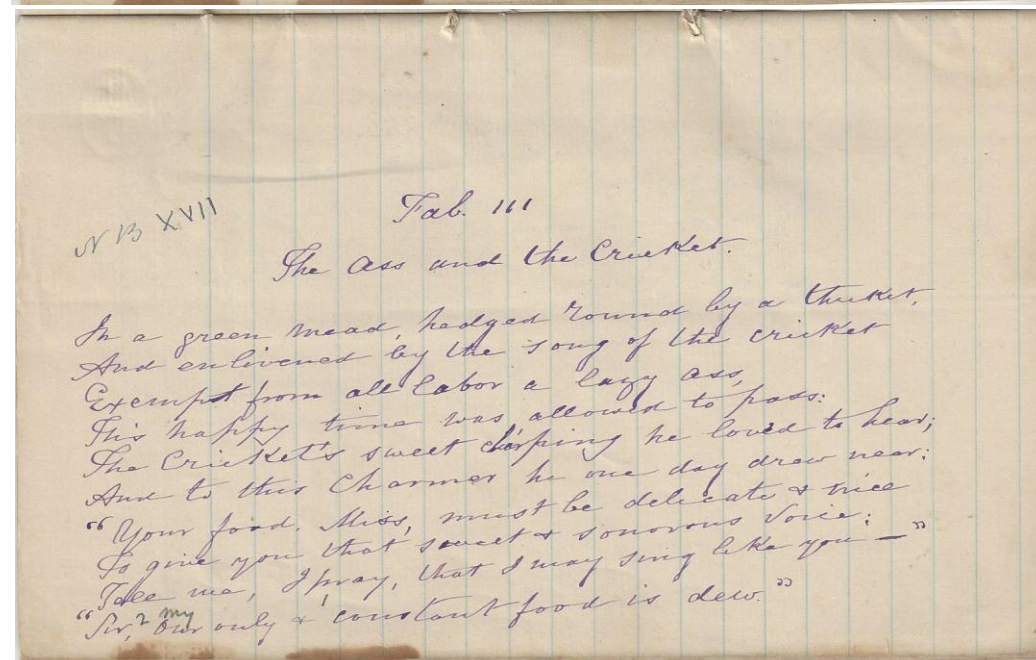 N B XVII
Fab. 111
The Ass and the Cricket.
In a green mead, hedged round by a thicket,
And enlivened by the song of the cricket
Exempt from all labor a lazy ass,
His happy time was allowed to pass:
The Cricket's sweet chirping he loved to hear;
And to this Charmer he one day drew near:
"Your food, Miss, must be delicate & nice
To give you that sweet & sonorous voice;
Tell me, I pray, that I may sing like you —"
"Sir, 2 my our only & 1 constant food is dew."